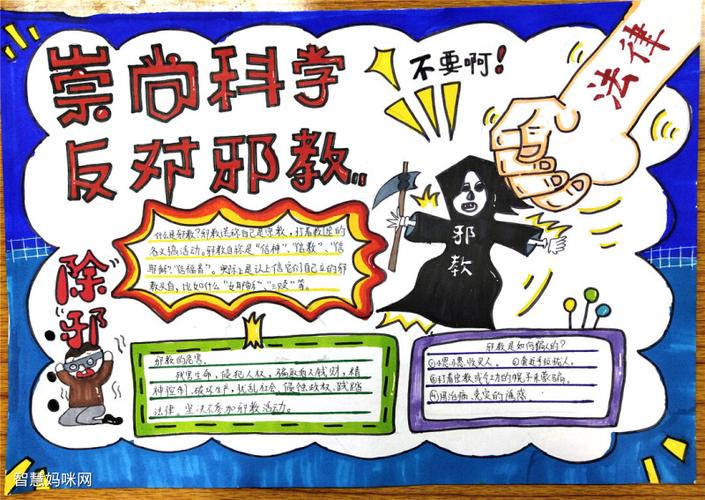 崇尚科学
反对邪教
不要啊!
法律
邪教
除邪
什么是邪教?邪教谎称自己是宗教,打着教派的
名义搞活动。邪教自称是“信神”、“信教”、“信
耶稣”、“信福音”。实际上是让人信它们自己立的邪
教头目,比如什么“女耶稣”、“三赎”等。
邪教的危害
残害生命,侵犯人权,骗取有人钱财,精
神控制、破坏生产,扰乱社会、侵蚀政权、践踏
法律。坚决不参加邪教活动。
邪教是如何骗人的?
①小恩小惠,收买人。 ②亲近手拉拢人。
③打着宗教或气功的幌子来蒙骗。
④用治病、免灾的
智慧妈咪网